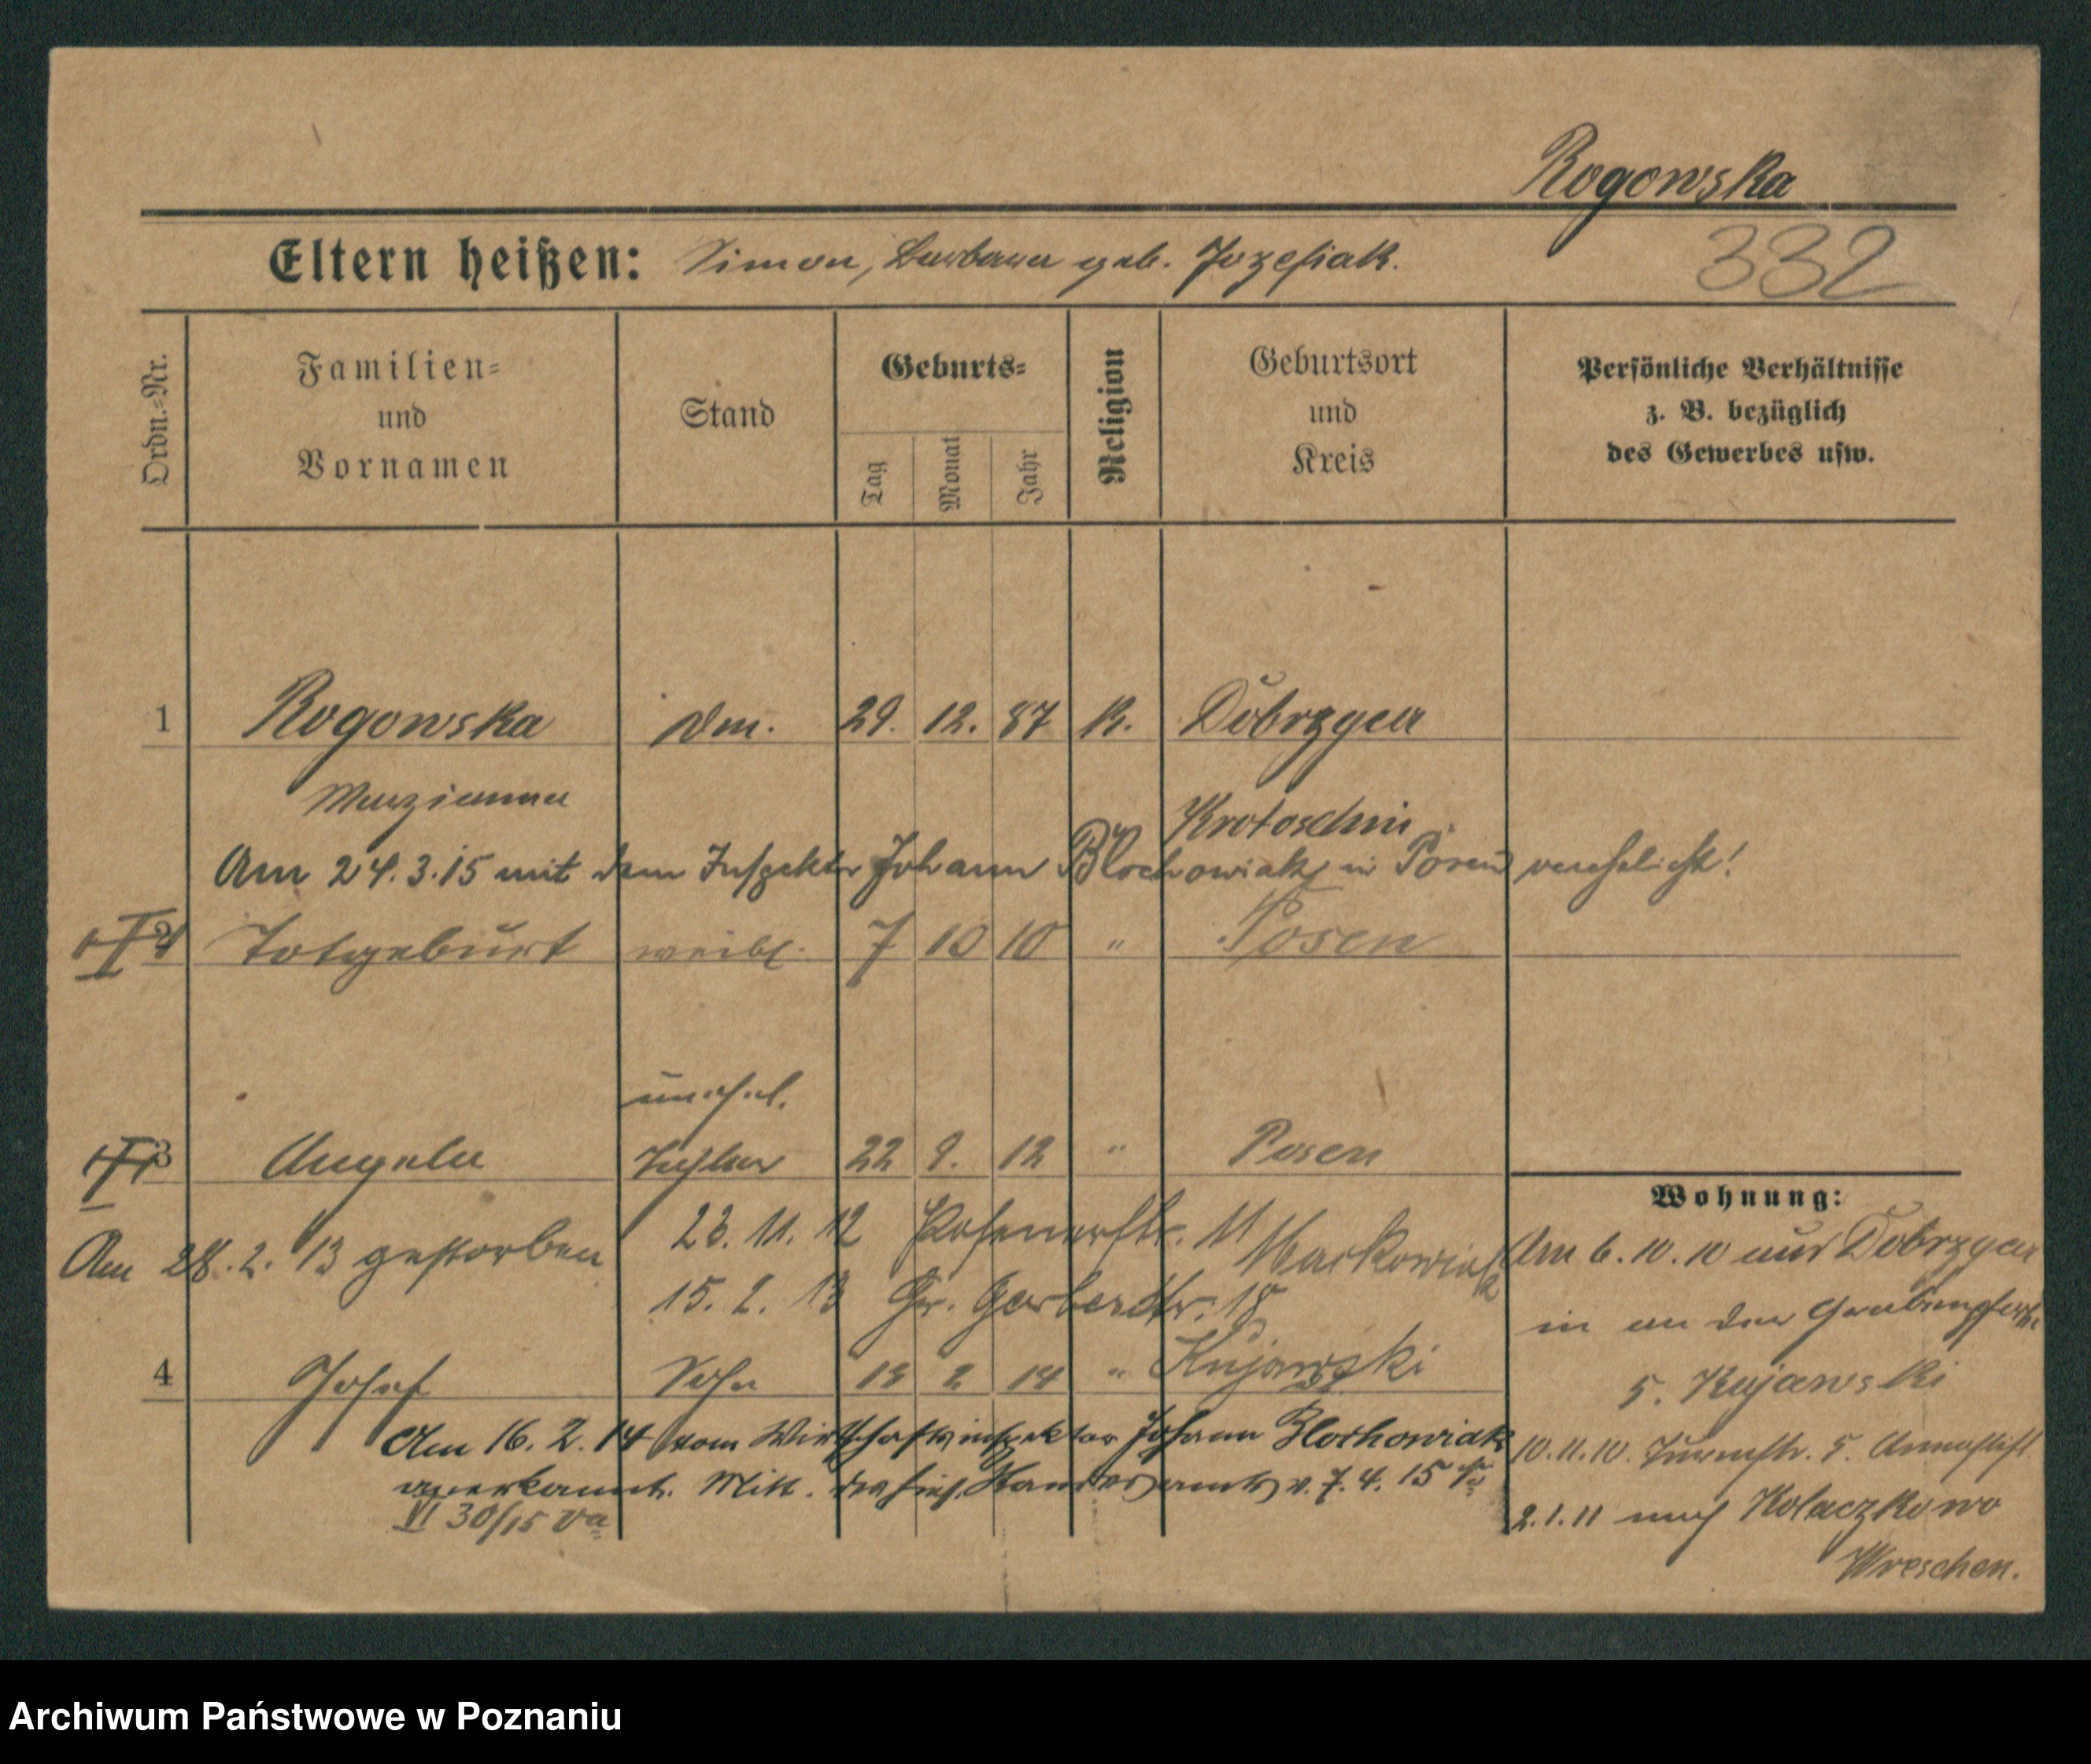 Rogowska
332
Eltern heißen: Simon, Barbara geb. Jozefiak.
Ordn.-Nr.
Familien-
und
Vornamen
Stand
Geburts-
Tag
Monat
Jahr
Religion
Geburtsort
und
Kreis
Persönliche Verhältnisse
z. B. bezüglich
des Gewerbes usw.
1 Rogowska 29. 12. 87 K. Dobrzyca
Marzianna Krotoschin
Am 24.3.15 mit dem Inspektor Johann Blochowiak in Posen verehelicht!
2 Totgeburt weibl. 7 10 10 " Posen
unehel.
3 Angela Tochter 22 9. 12 " Posen
Am 28.2.13 gestorben
23. 11. 12 Posenerstr. 11 Markowiak
15. 2. 13 Gr. Gerberstr. 18
Kujawski
4 Josef Sohn 13 2 14 "
Am 16. 2. 14 vom Wirtschaftsinspektor Johann Blochowiak
anerkannt. Mitt. des hies. Standesamts v. 7. 4. 15
VI 30/15 Va
Wohnung:
Am 6. 10. 10 aus Dobrzyca
in an der
5. Kujawski
10.11.10. Turmstr. 5. Annastift
2.1.11 nach Kolaczkowo
Wreschen.
Archiwum Państwowe w Poznaniu